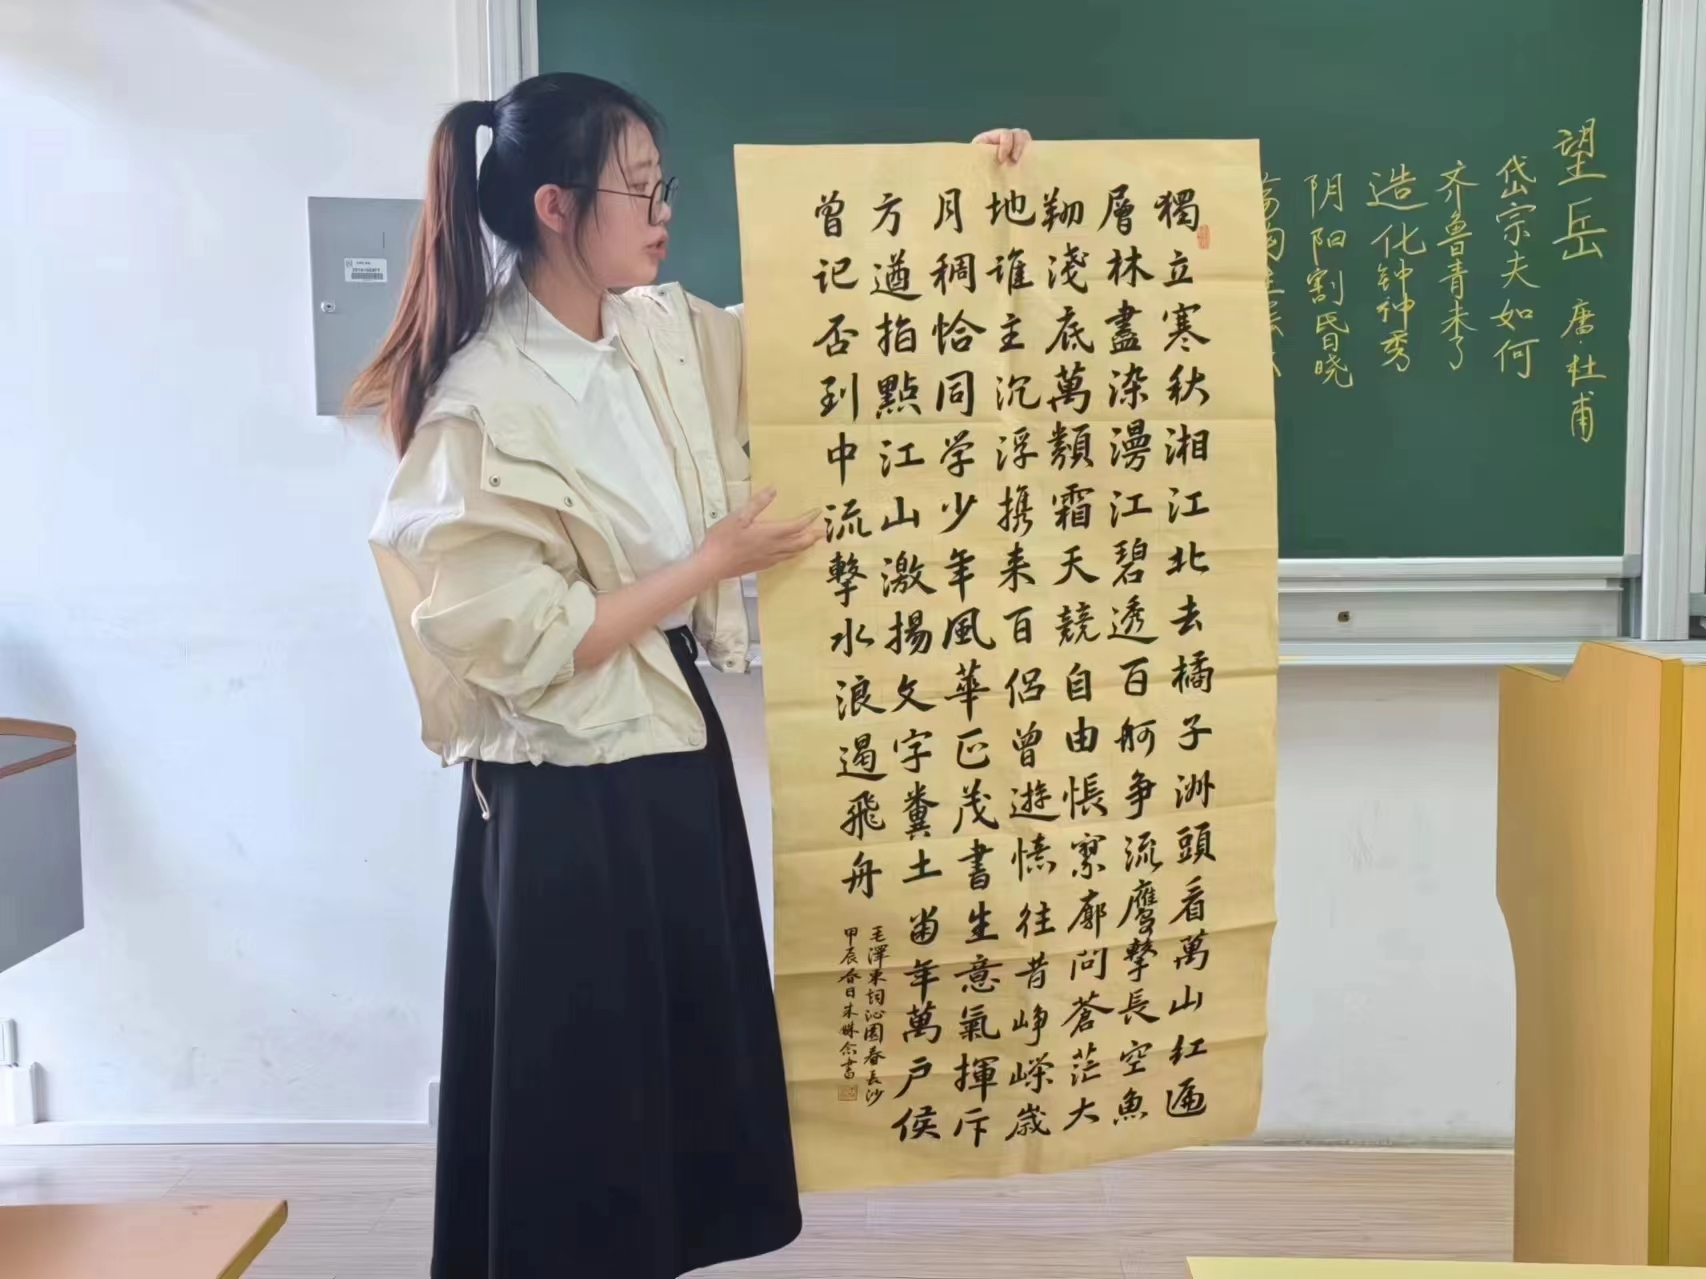 望岳 唐·杜甫
岱宗夫如何
齐鲁青未了
造化钟神秀
阴阳割昏晓
獨立寒秋湘江北去橘子洲頭看萬山红遍
層林盡染漫江碧透百舸争流鷹擊長空魚
翔淺底萬類霜天競自由悵寥廓問蒼茫大
地谁主沉浮携来百侣曾遊憶往昔峥嵘歲
月稠恰同学少年風華正茂書生意氣揮斥
方遒指點江山激揚文字糞土當年萬户侯
曾记否到中流擊水浪遏飛舟
毛澤東詞沁園春長沙
甲辰春日朱書